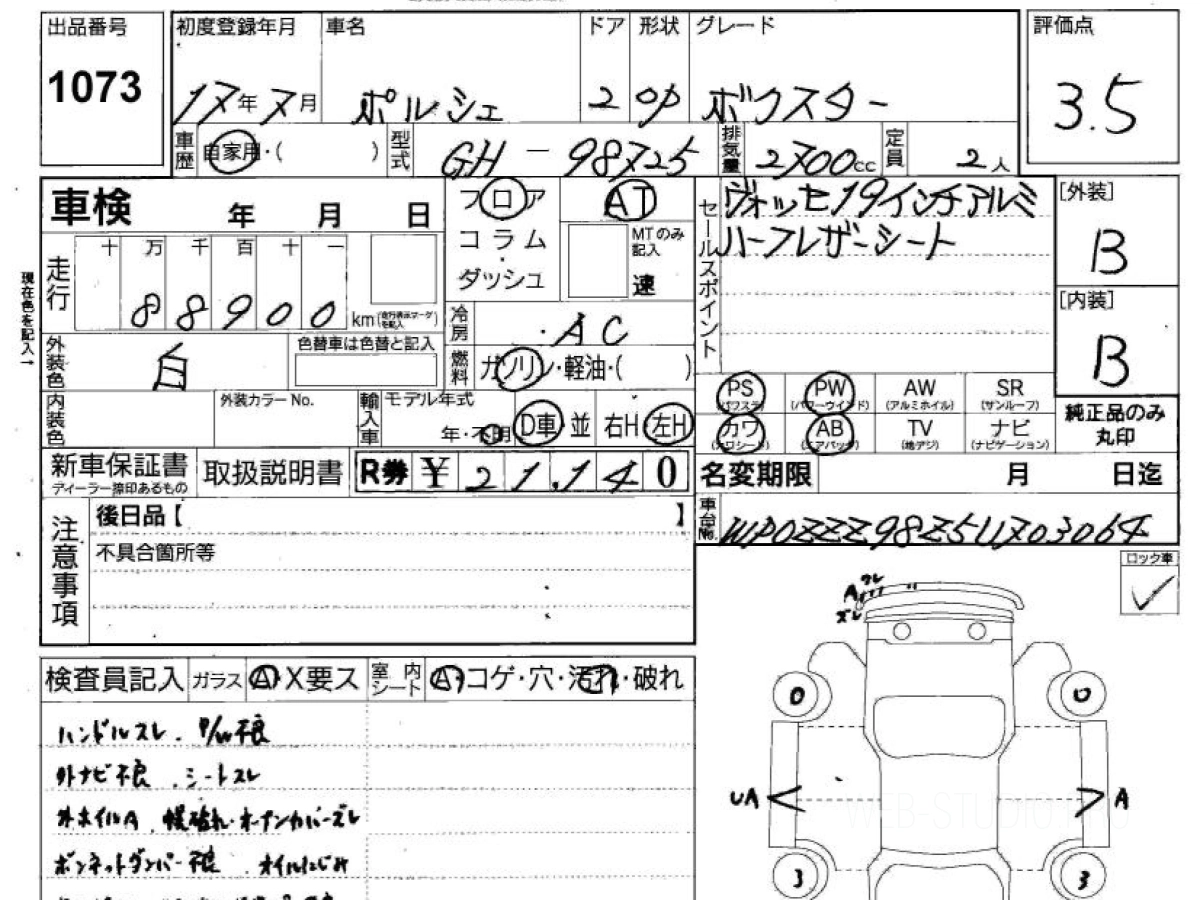 出品番号
1073
初度登録年月 車名 ドア 形状 グレード
17年7月 ポルシェ 2 OP ボクスター
評価点
3.5
車歴 自家用・( ) 型式 GH-98725 排気量 2700cc 定員 2人
車検 年 月 日
フロア
コラム
・
ダッシュ
AT
MTのみ
記入
速
セールスポイント
ヴォッセ19インチアルミ
ハーフレザーシート
[外装]
B
[内装]
B
現在色を記入→
走行
十 万 千 百 十 一
88900 km
外装色 白
色替車は色替と記入
冷房 AC
燃料 ガソリン・軽油・( )
内装色
外装カラーNo.
輸入車 モデル年式
年・不明 D車 並 右H 左H
PS
(パワステ)
PW
(パワーウインド)
AW
(アルミホイル)
SR
(サンルーフ)
カワ
(カワシート)
AB
(エアバッグ)
TV
(地デジ)
ナビ
(ナビゲーション)
純正品のみ
丸印
新車保証書
ディーラー捺印あるもの
取扱説明書
R券 ¥ 21,140
名変期限 月 日迄
車台No. WP0ZZZ98Z5U703064
注意事項
後日品【 】
不具合箇所等
ロック車
検査員記入 ガラス A X要ス 室内シート A コゲ・穴・汚れ・破れ
ハンドルスレ . P/W不良
外ナビ不良 . シートスレ
外ホイルA . 幌破れ・オープンカバーズレ
ボンネットダンパー不良 . オイルにじみ
A ワレ
ズレ
0 0
UA A
3 3
WEB-STUDIO.PRO